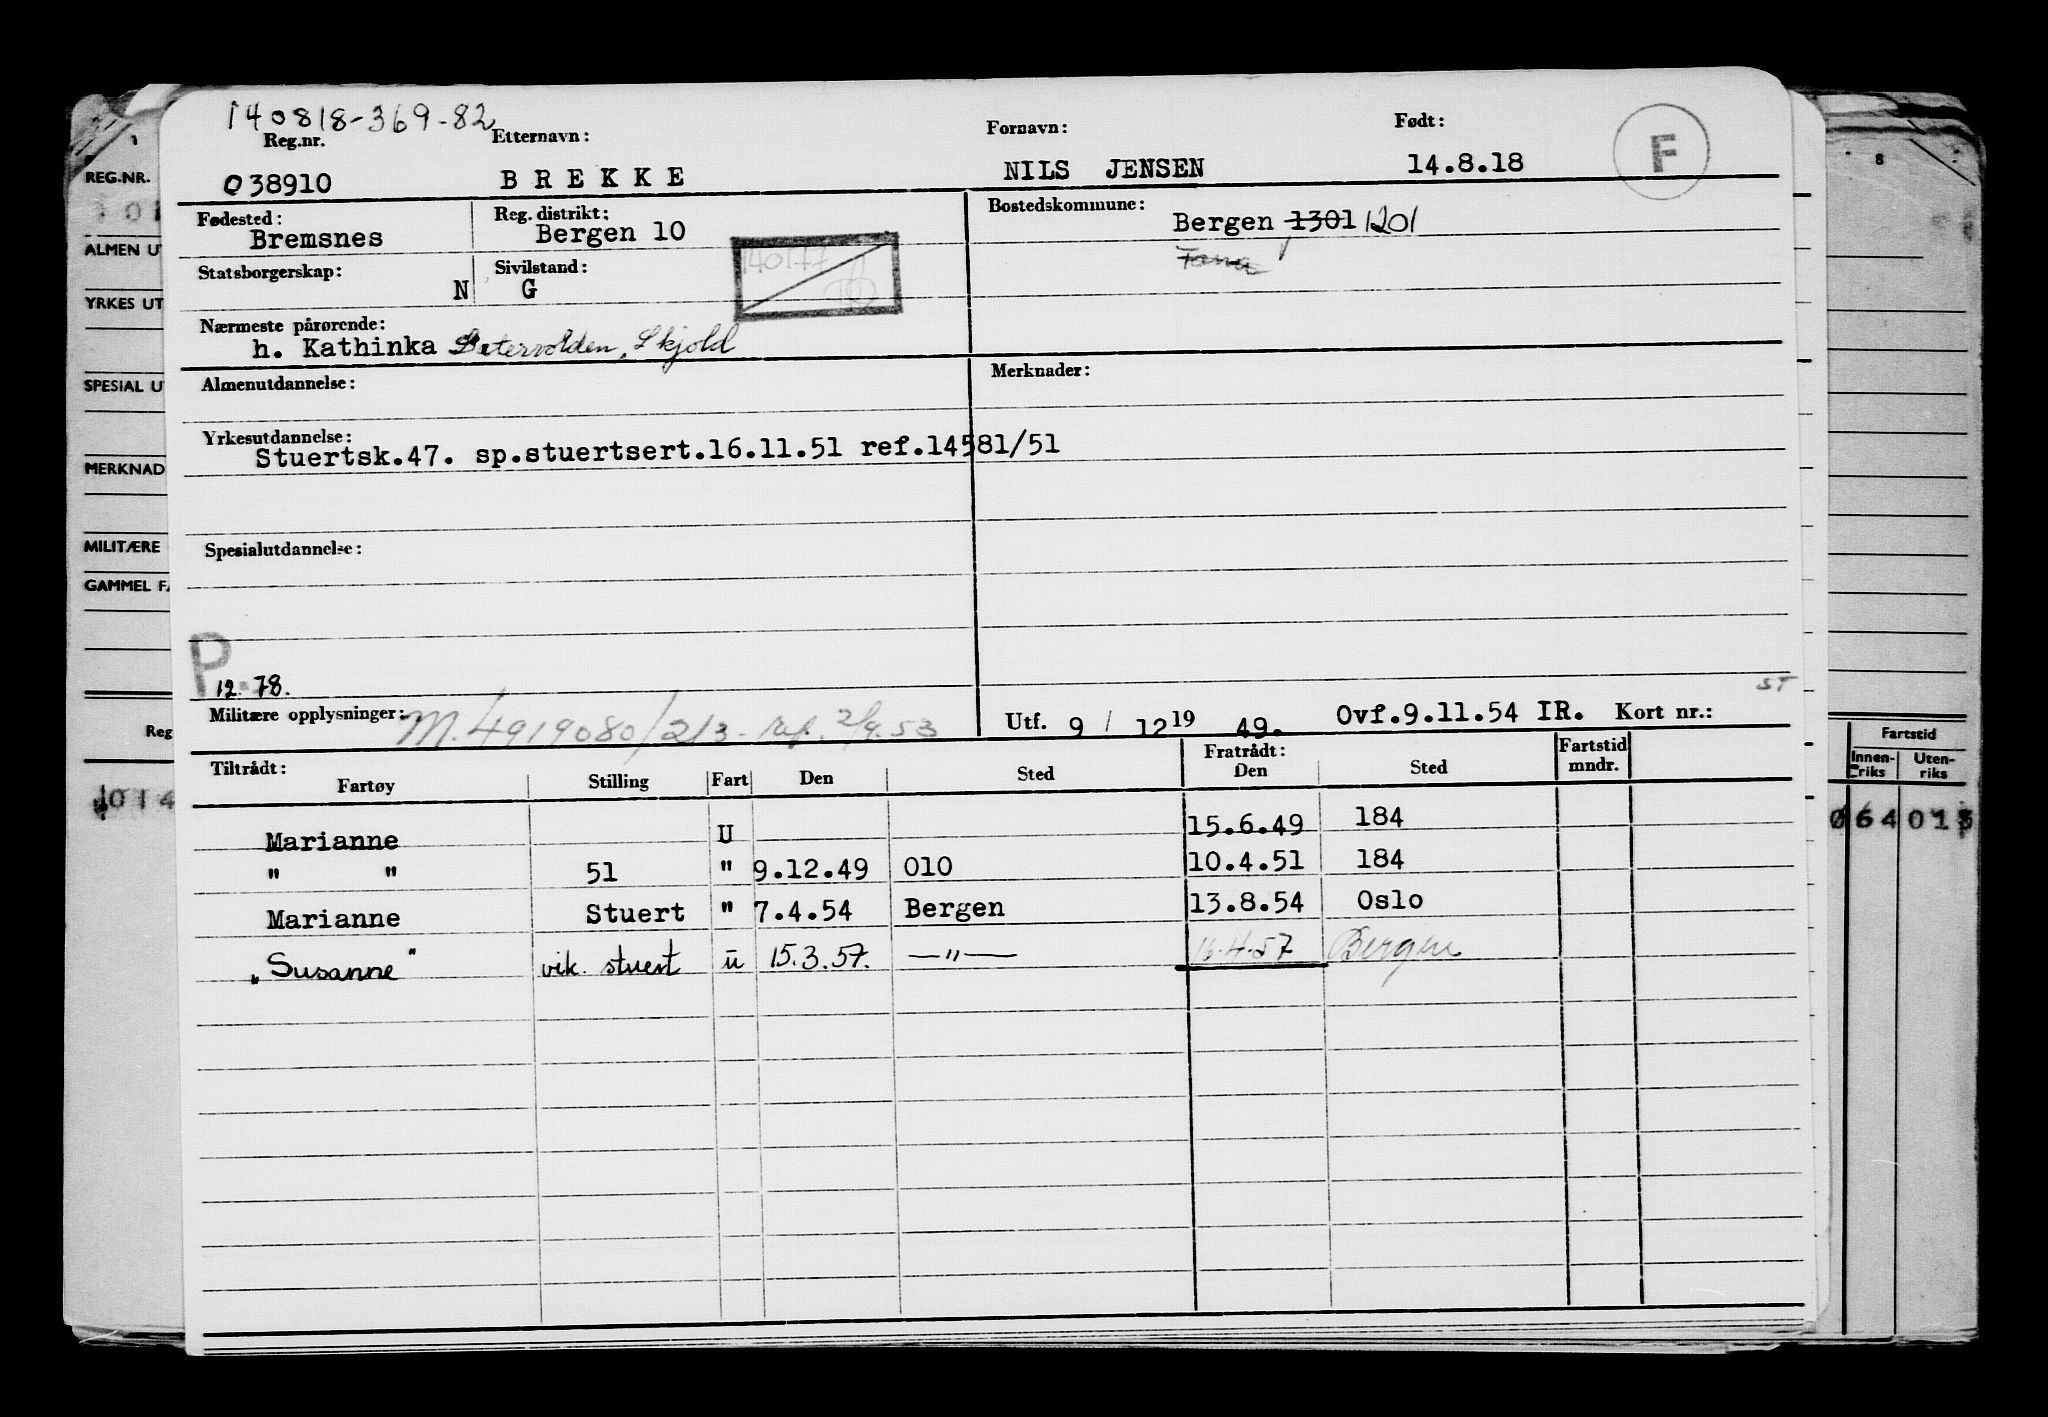 140818-369-82
Reg.nr. Etternavn: Fornavn: Født:
038910 BREKKE NILS JENSEN 14.8.18 F
Fødested: Reg. distrikt: Bostedskommune:
Bremsnes Bergen 10 Bergen 1301 1201
Fana
Statsborgerskap: Sivilstand:
N G
140177
Nærmeste pårørende:
h. Kathinka Skjold
Almenutdannelse: Merknader:
Yrkesutdannelse:
Stuertsk.47. sp.stuertsert.16.11.51 ref.14581/51
Spesialutdannelse:
P.
12. 78.
ST
Militære opplysninger: M.4919080/2/3- ref. 2/9.53 Utf. 9 / 12 19 49. Ovf.9.11.54 IR. Kort nr.:
Tiltrådt: Fratrådt: Fartstid
Fartøy Stilling Fart Den Sted Den Sted mndr.
Marianne U 15.6.49 184
" " 51 " 9.12.49 010 10.4.51 184
Marianne Stuert " 7.4.54 Bergen 13.8.54 Oslo
„Susanne" vik. stuert u 15.3.57. —"— 16.4.57 Bergen
REG.NR.
ALMEN UT
YRKES UT
SPESIAL UT
MERKNAD
MILITÆRE
GAMMEL FA
Reg
1014
8
Fartstid
Innen-riks Uten-riks
064 015